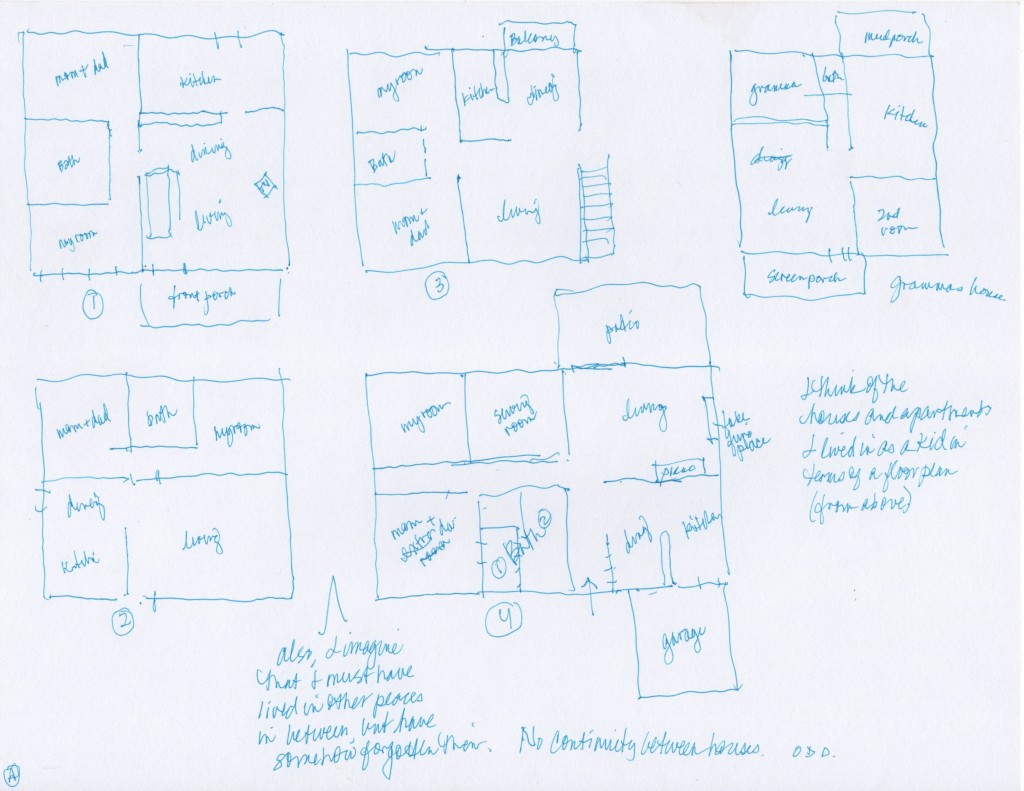 mom + dad
kitchen
Bath
dining
living
my room
front porch
1
my room
Balcony
kitchen
dining
Bath
mom +
dad
living
3
mudporch
gramma
bath
kitchen
living
2nd
room
screenporch
grammas house
mom + dad
bath
my room
dining
kitchen
living
2
patio
my room
sewing
room
living
fake
fire
place
piano
mom +
dad
1
Bath
2
dining
kitchen
4
garage
I think of the
houses and apartments
I lived in as a kid in
terms of a floor plan
(from above)
also, I imagine
that I must have
lived in other places
in between, but have
somehow forgotten them.
No continuity between houses.
A